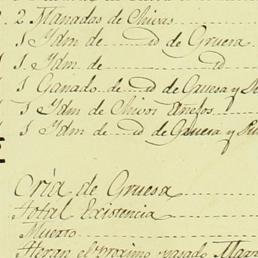 2 Manadas de Chivas
1 Idm de id de Gruesa
1 Idm de id
1 Ganado de id de Gruesa y
1 Idm de Chivos Añejos
1 Idm de id de Gruesa y
Cría de Gruesa
Total Existencia
Muerto
Hieran el proximo pasado